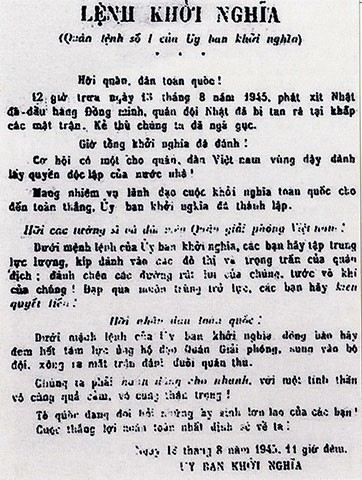 LỆNH KHỞI NGHĨA
(Quân lệnh số 1 của Uỷ ban khởi nghĩa)
Hỡi quân, dân toàn quốc!
12 giờ trưa ngày 13 tháng 8 năm 1945, phát xít Nhật
đã đầu hàng Đồng minh, quân đội Nhật đã bị tan rã tại khắp
các mặt trận. Kẻ thù chúng ta đã ngã gục.
Giờ tổng khởi nghĩa đã đánh!
Cơ hội có một cho quân, dân Việt nam vùng dậy đánh
lấy quyền độc lập của nước nhà!
Mang nhiệm vụ lãnh đạo cuộc khởi nghĩa toàn quốc cho
đến toàn thắng, Ủy ban khởi nghĩa đã thành lập.
Hỡi các tướng sĩ và đội viên Quân giải phóng Việt nam!
Dưới mệnh lệnh của Ủy ban khởi nghĩa, các bạn hãy tập trung
lực lượng, kíp đánh vào các đô thị và trọng trấn của quân
địch; đánh chẹn các đường rút lui của chúng, tước võ khí
của chúng! Đạp qua muôn trùng trở lực, các bạn hãy kiên
quyết tiến!
Hỡi nhân dân toàn quốc!
Dưới mệnh lệnh của Ủy ban khởi nghĩa, đồng bào hãy
đem hết tâm lực ủng hộ đạo Quân Giải phóng, sung vào bộ
đội, xông ra mặt trận đánh đuổi quân thù.
Chúng ta phải hành động cho nhanh, với một tinh thần
vô cùng quả cảm, vô cùng thận trọng!
Tổ quốc đang đòi hỏi những hy sinh lớn lao của các bạn!
Cuộc thắng lợi hoàn toàn nhất định sẽ về ta!
Ngày 13 tháng 8 năm 1945, 11 giờ đêm.
UỶ BAN KHỞI NGHĨA